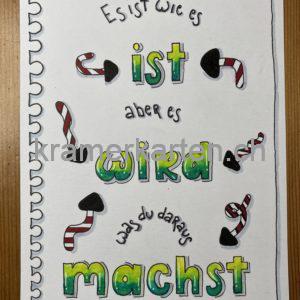 Es ist wie es
ist
aber es
wird
kramerkarten.ch
was du daraus
machst